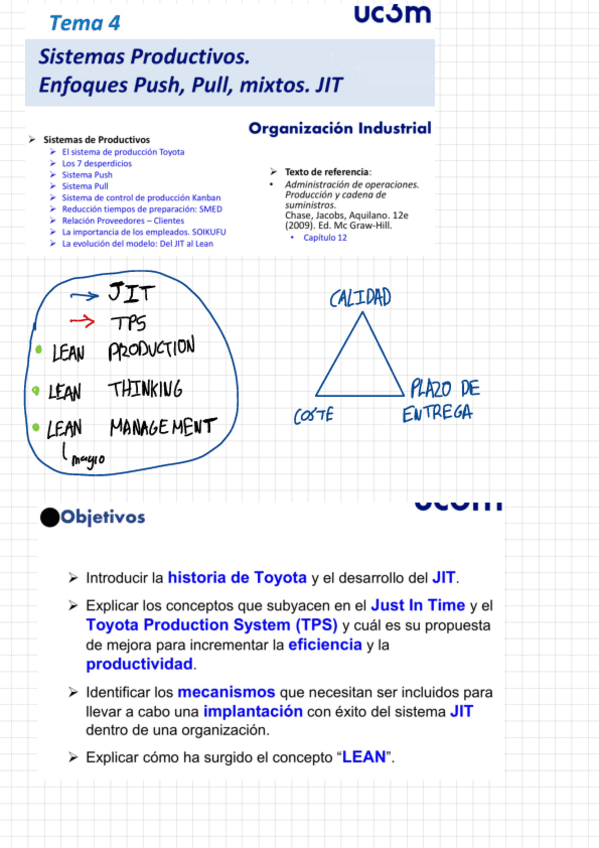 Tema 4
uc3m
Sistemas Productivos.
Enfoques Push, Pull, mixtos. JIT
Organización Industrial
➢ Sistemas de Productivos
➢ El sistema de producción Toyota
➢ Los 7 desperdicios
➢ Sistema Push
➢ Sistema Pull
➢ Sistema de control de producción Kanban
➢ Reducción tiempos de preparación: SMED
➢ Relación Proveedores – Clientes
➢ La importancia de los empleados. SOIKUFU
➢ La evolución del modelo: Del JIT al Lean
➢ Texto de referencia:
• Administración de operaciones.
Producción y cadena de
suministros.
Chase, Jacobs, Aquilano. 12e
(2009). Ed. Mc Graw-Hill.
• Capítulo 12
→ JIT
→ TPS
• LEAN PRODUCTION
• LEAN THINKING
• LEAN MANAGEMENT
magro
CALIDAD
COSTE
PLAZO DE
ENTREGA
uc3m
Objetivos
➢ Introducir la historia de Toyota y el desarrollo del JIT.
➢ Explicar los conceptos que subyacen en el Just In Time y el
Toyota Production System (TPS) y cuál es su propuesta
de mejora para incrementar la eficiencia y la
productividad.
➢ Identificar los mecanismos que necesitan ser incluidos para
llevar a cabo una implantación con éxito del sistema JIT
dentro de una organización.
➢ Explicar cómo ha surgido el concepto “LEAN”.